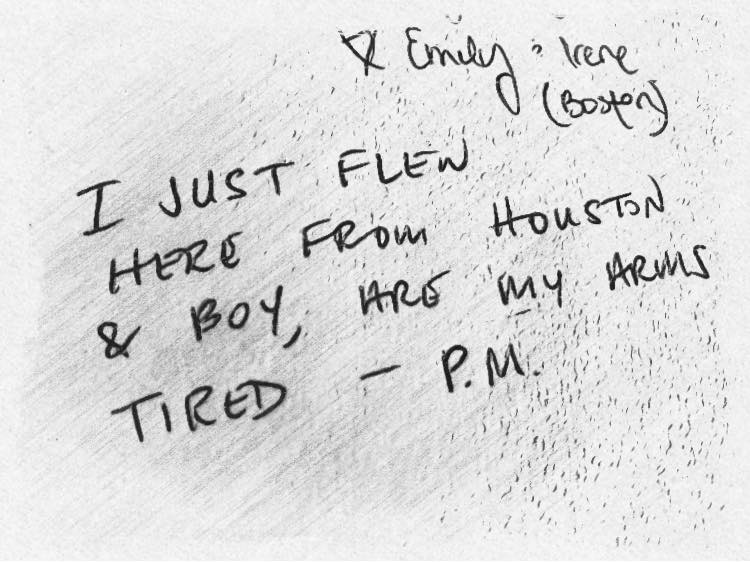 Emily & Irene
(Boston)
I JUST FLEW
HERE FROM HOUSTON
& BOY, ARE MY ARMS
TIRED — P.M.